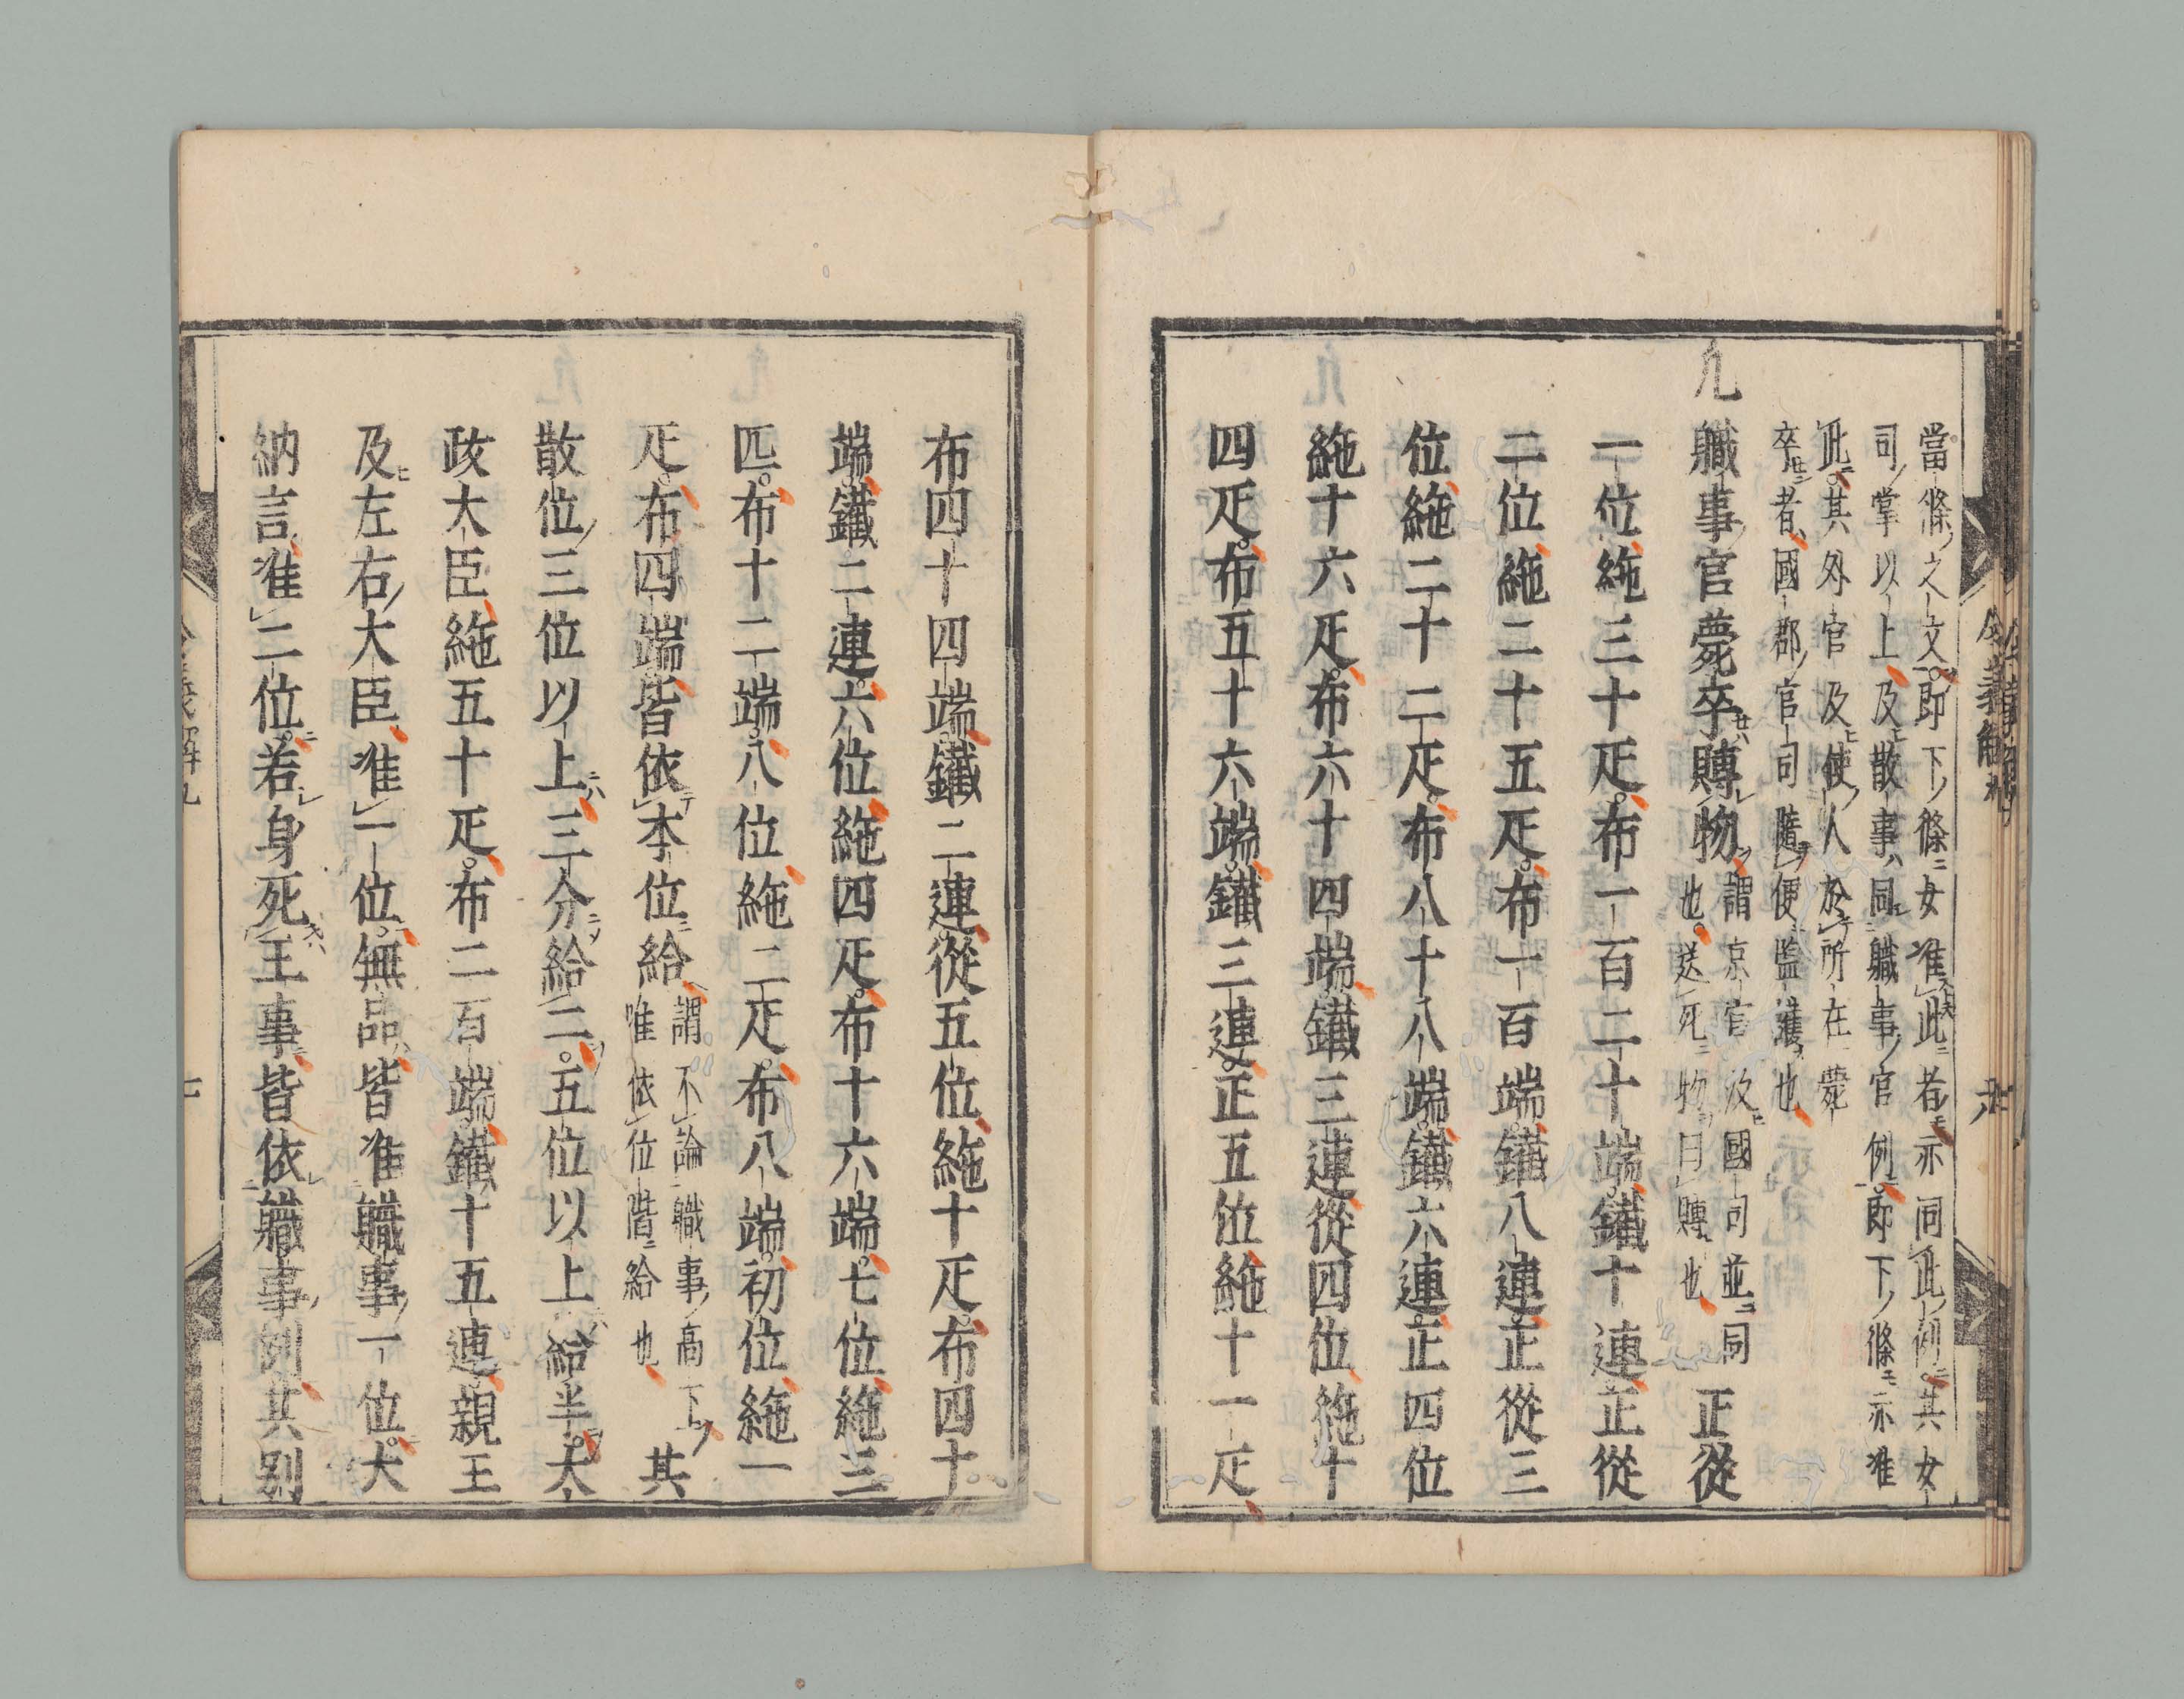 當條之文即下條女准此者示同此例其女
司掌以上及散事同職事官例即下條示准
此其外官及使人於所在薨
卒者國郡官司隨便監護也
凡職事官薨卒賻物謂京官及國司並同也送死物曰賻也正從
一位絁三十疋布一百二十端鐵十連正從
二位絁二十五疋布一百端鐵八連正從三
位絁二十二疋布八十八端鐵六連正四位
絁十六疋布六十四端鐵三連從四位絁十
四疋布五十六端鐵三連正五位絁十一疋
布四十四端鐵二連從五位絁十疋布四十
端鐵二連六位絁四疋布十六端七位絁三
匹布十二端八位絁二疋布八端初位絁一
疋布四端皆依本位給謂不論職事高下唯依位階給也其
散位三位以上三分給二五位以上給半太
政大臣絁五十疋布二百端鐵十五連親王
及左右大臣准一位無品皆准職事一位大
納言准二位若身死王事皆依職事例其別